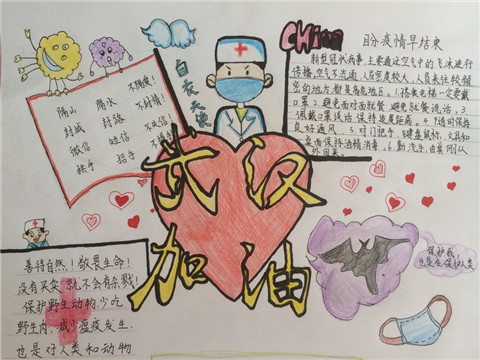 China
盼疫情早结束
新型冠状病毒,主要通过空气中的飞沫进行
传播,空气不流通,人员密度较大,人员来往较频
密的地方都是高危地区。1.搭乘电梯一定要戴
口罩 2.避免面对面就餐,避免就餐说话。3.
佩戴口罩谈话,保持适度距离。4.
良好通风。5.对门把手、键盘鼠标、文具和
桌面保持酒精消毒。6.勤洗手
白衣天使
隔山 隔水 不隔爱!
封城 封路 不封情!
微信 短信
握手 招手
武汉
加油
善待自然!敬畏生命!
没有买卖,就不会有杀戮!
保护野生动物,少吃
野生肉,减少瘟疫发生.
也是对人类和动物
保护我
也是在保护人类